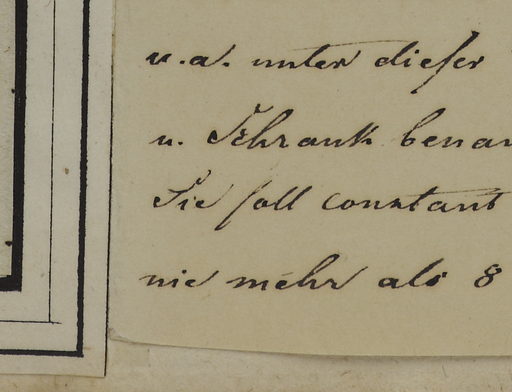 u. a. unter dieſer
u. Schrank benan
Sie ſoll constant
nie mehr als 8